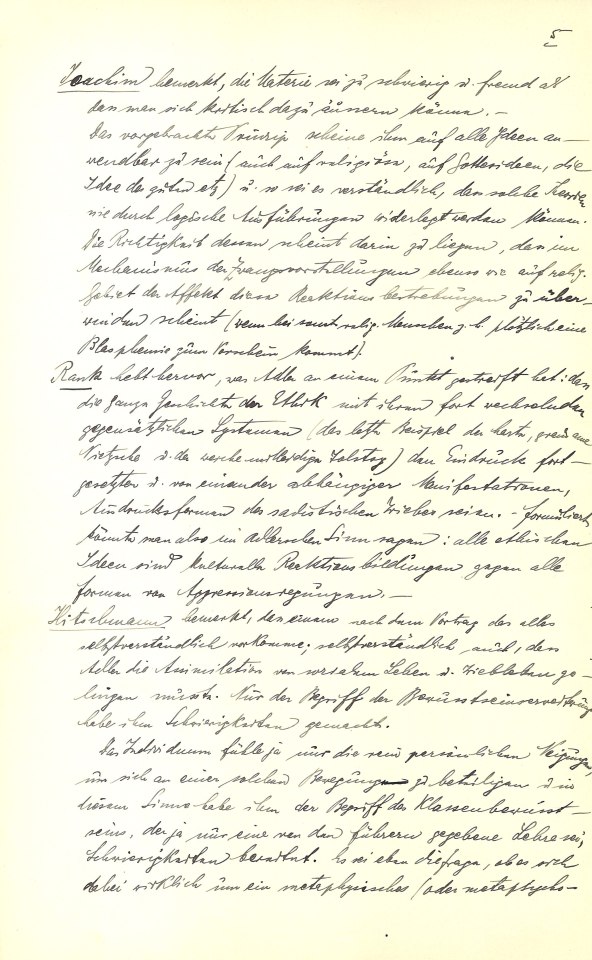 5
Joachim bemerkt, die Materie sei zu schwierig u. fremd als
dass man sich kritisch dazu äussern könne. –
Das vorgebrachte Prinzip scheine ihm auf alle Ideen an–
wendbar zu sein (auch auf religiöse, auf Gottesideen, die
Idee des guten etz) u. so sei es verständlich, dass solche
nie durch logische Ausführungen widerlegt werden können.
Die Richtigkeit dessen scheint darin zu liegen, dass im
Mechanismus der Zwangsvorstellungen ebenso wie auf relig.
Gebiet der Affekt diese Reaktionsbestrebungen zu über–
winden scheint (wenn bei sonst relig. Menschen z. b. plötzlich eine
Blasphemie zum Vorschein kommt).
Rank hebt hervor, was Adler an einem Punkt gestreift hat: dass
die ganze Geschichte der Ethik mit ihren fort wechselnden
gegensätzlichen Systemen (das letzte Beispiel der harte, grausame
Nietzsche u. der weiche mitleidige Tolstoy) den Eindruck fort–
gesetzter u. von einander abhängiger Manifestationen,
Ausdrucksformen des sadistischen Triebes seien. – formuliert
könnte man also im Adlerschen Sinn sagen: alle ethischen
Ideen sind kulturelle Reaktionsbildungen gegen alle
formen von Aggressionsregungen. –
Hitschmann bemerkt, dass einem nach dem Vortrag das alles
selbstverständlich vorkomme; selbstverständlich auch, dass
Adler die Assimilation von sozialem Leben u. Triebleben ge–
lingen musste. Nur der Begriff der Bewusstseinserweiterung
habe ihm Schwierigkeiten gemacht.
Das Individuum fühle ja nur die rein persönlichen Neigungen,
um sich an einer solchen Bewegung zu beteiligen u. in
diesem Sinne habe ihm der Begriff des Klassenbewusst–
seins, der ja nur eine von den führern gegebene Lehre sei,
Schwierigkeiten bereitet. Es sei eben die frage, ob es sich
dabei wirklich um ein metaphysisches (oder metapsycho–